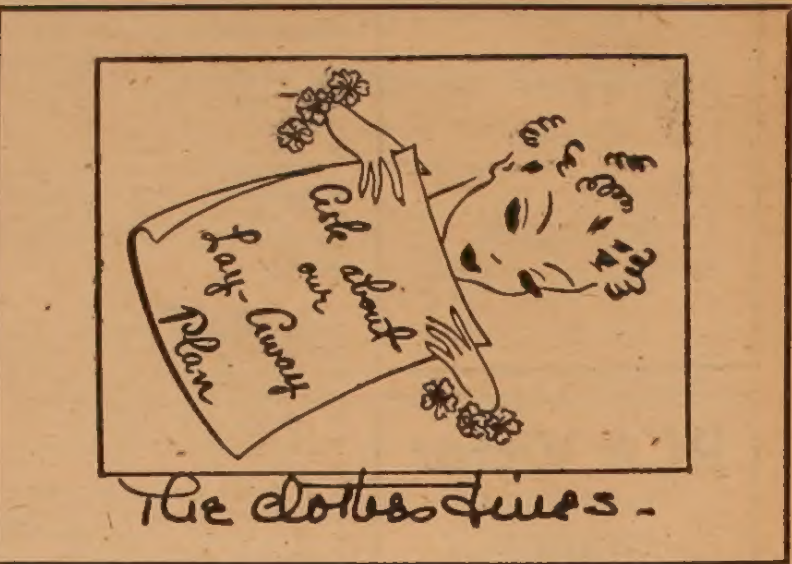 Ask about
our
Lay-Away
Plan
The clothes Lines-